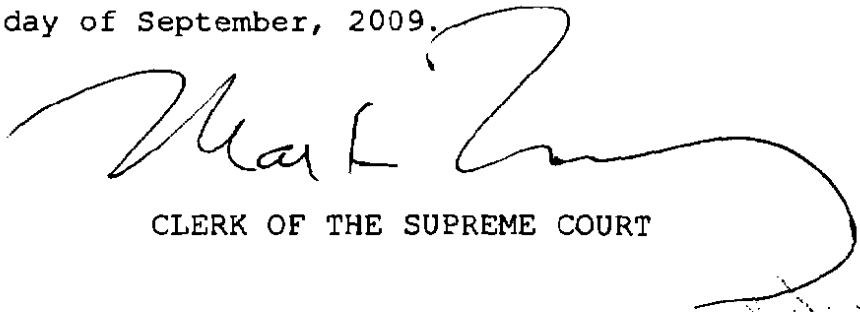 day of September, 2009.
Mark
CLERK OF THE SUPREME COURT